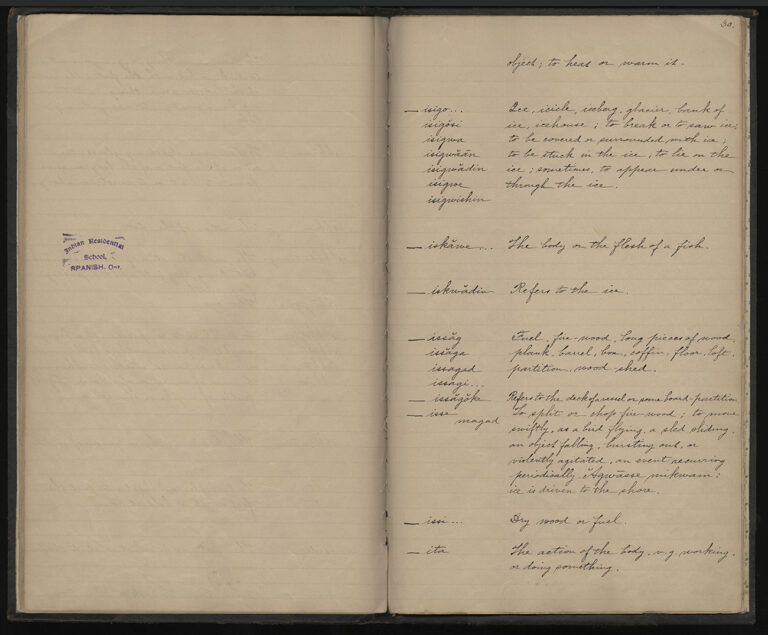 Indian Residential
School,
SPANISH. Ont.
30.
object; to heat or warm it.
— isigo... Ice, icicle, iceberg, glacier, bank of
isigŏsi ice, icehouse; to break or to saw ice;
isigwa to be covered or surrounded with ice;
isigwăăn to be stuck in the ice; to lie on the
isigwădin ice; sometimes, to appear under or
isigwe through the ice.
isigwishin
— iskăwe... The body or the flesh of a fish.
— iskwădin Refers to the ice.
— issăg Fuel, fire-wood, long pieces of wood,
issăga plank, barrel, box, coffin, floor, loft,
issagad partition, wood shed.
issagi...
— issăgŏke Refers to the deck of a vessel or some board partition
— isse To split or chop fire-wood; to move
magad swiftly, as a bird flying, a sled sliding,
an object falling, bursting out, or
violently agitated, an event recurring
periodically. Ăgwăsse mikwam:
ice is driven to the shore.
— issi... Dry wood or fuel.
— ita The action of the body, v.g. working,
or doing something.